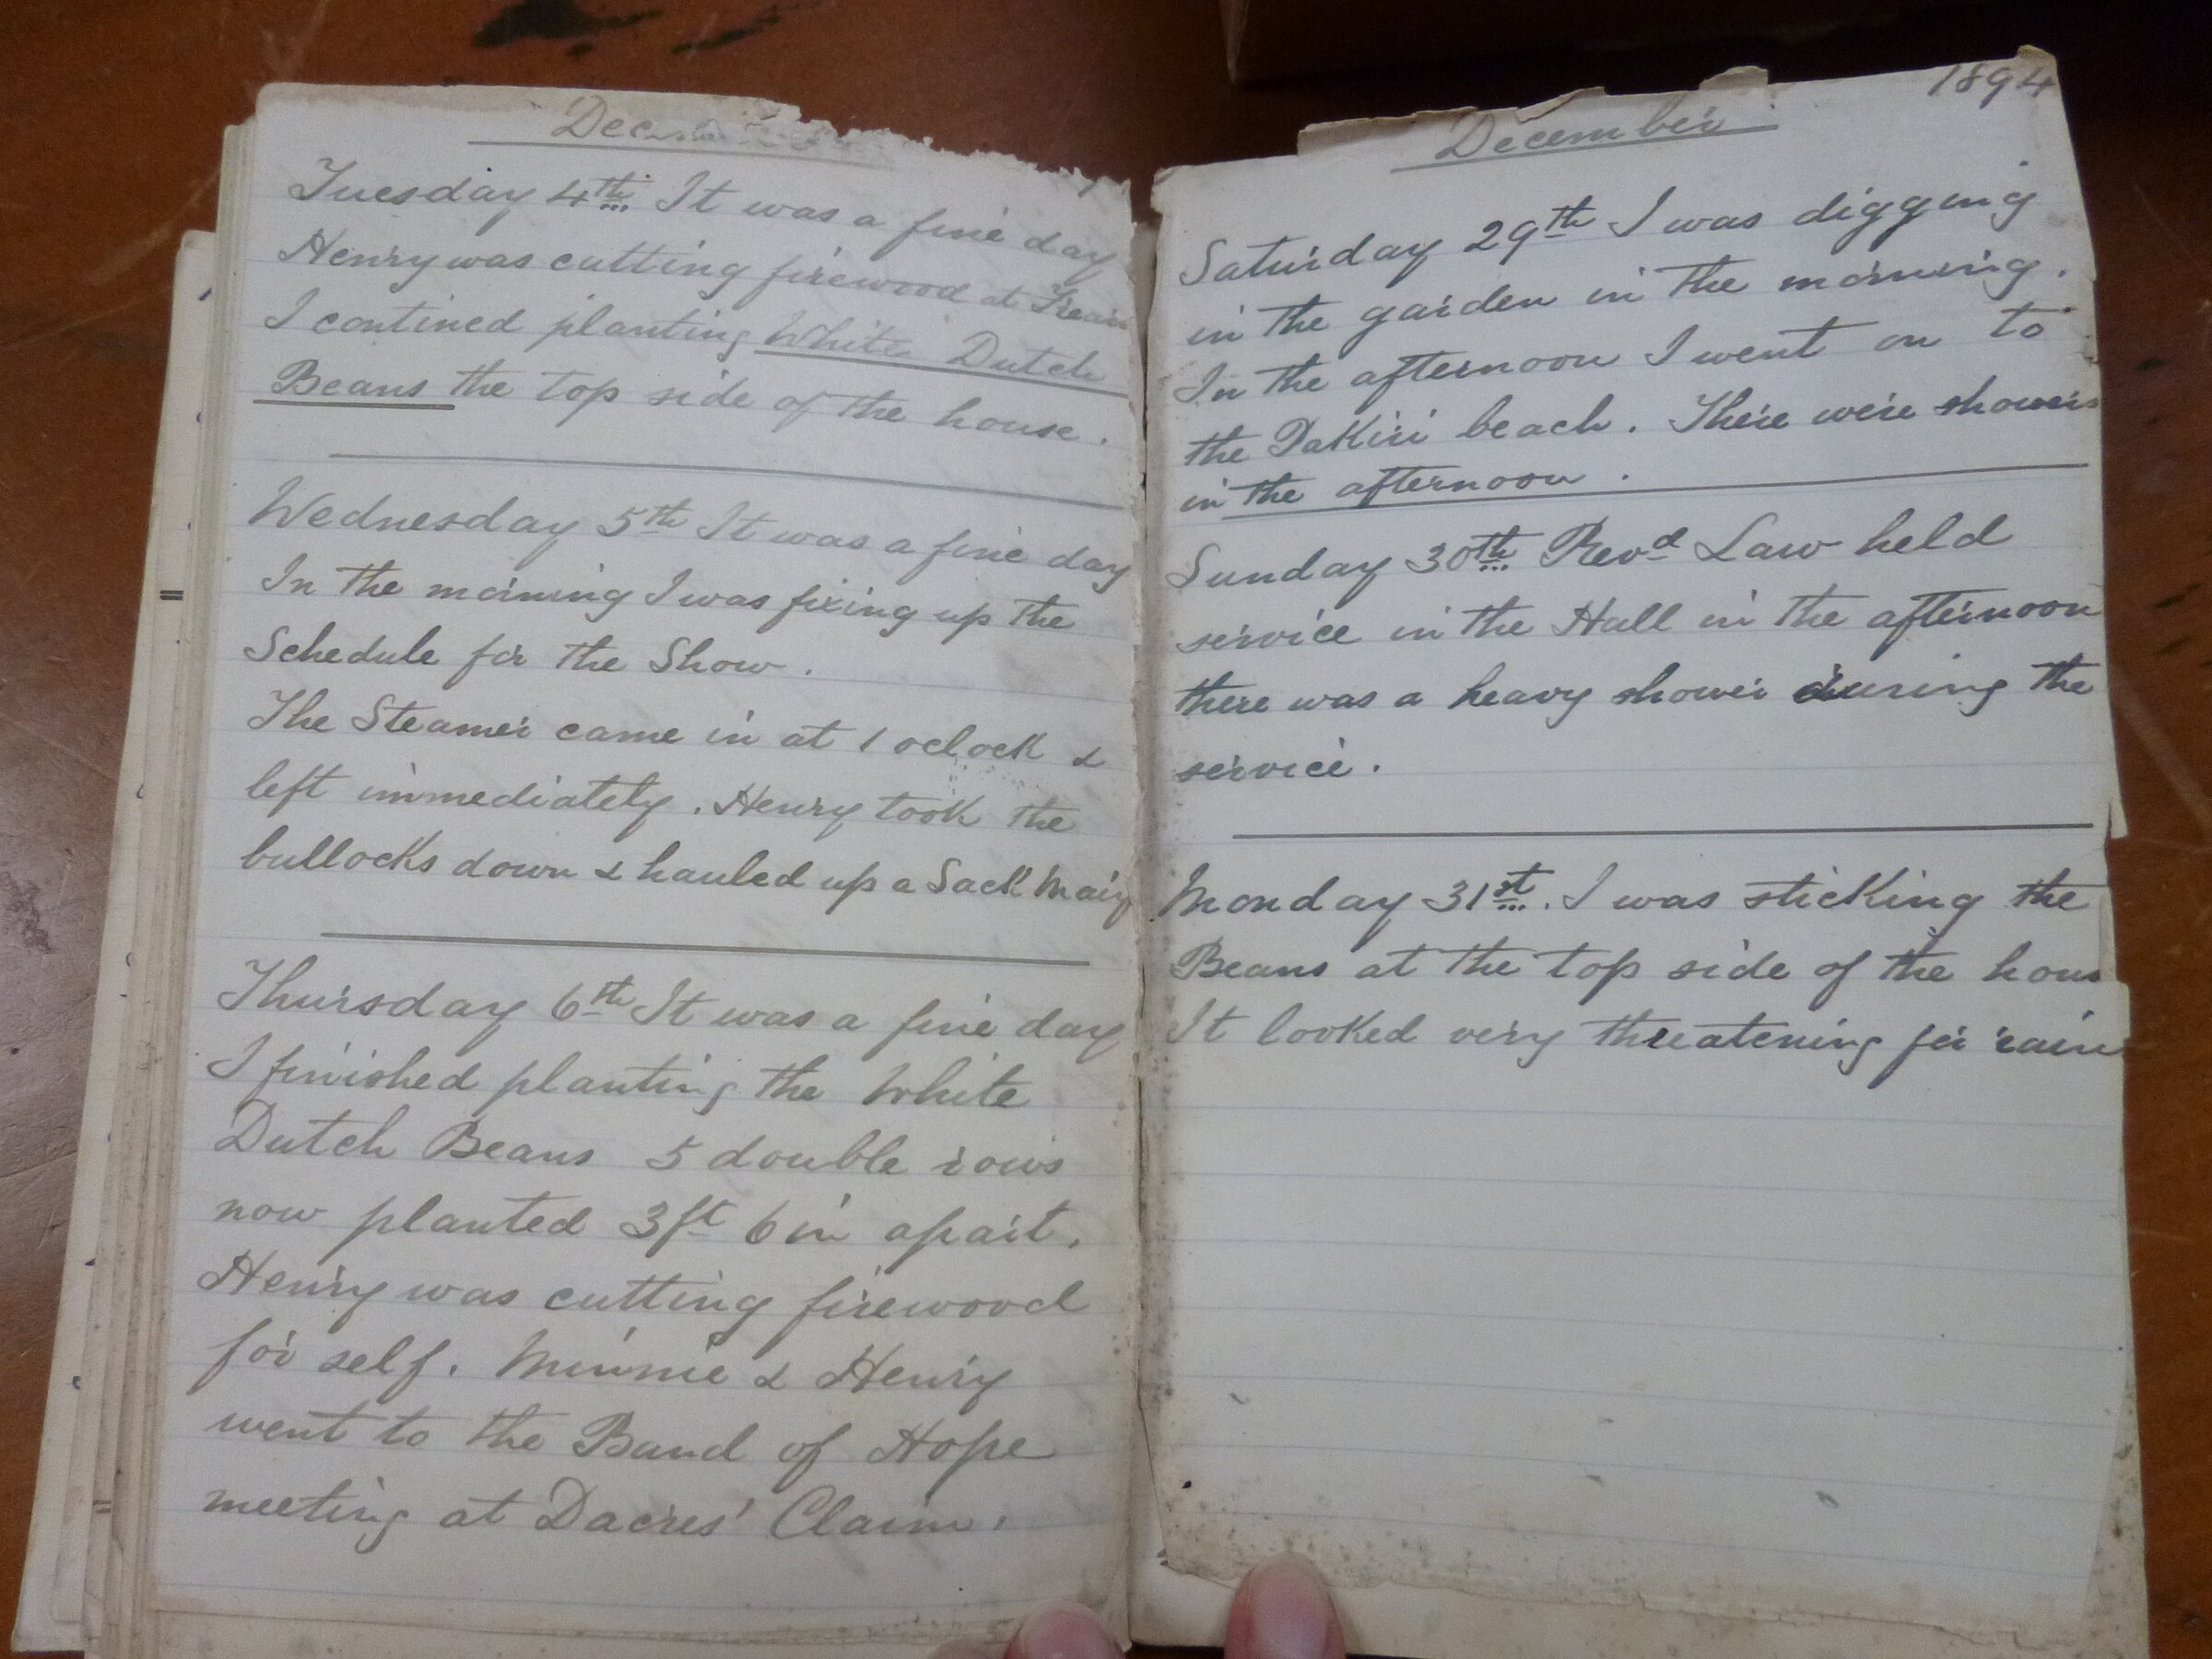 Dec
Tuesday 4th It was a fine day
Henry was cutting firewood at
I contined planting White Dutch
Beans the top side of the house.
Wednesday 5th It was a fine day
In the morning I was fixing up the
Schedule for the Show.
The Steamer came in at 1 oclock &
left immediately. Henry took the
bullocks down & hauled up a Sack
Thursday 6th It was a fine day
I finished planting the White
Dutch Beans 5 double rows
now planted 3ft 6in apart.
Henry was cutting firewood
for self. Minnie & Henry
went to the Band of Hope
meeting at Dacres' Claim.
1894
December
Saturday 29th I was digging
in the garden in the morning.
In the afternoon I went on to
the Pakiri beach. There were showers
in the afternoon.
Sunday 30th Revd Law held
service in the Hall in the afternoon
there was a heavy shower during the
service.
Monday 31st. I was sticking the
Beans at the top side of the hous
It looked very threatening for rain